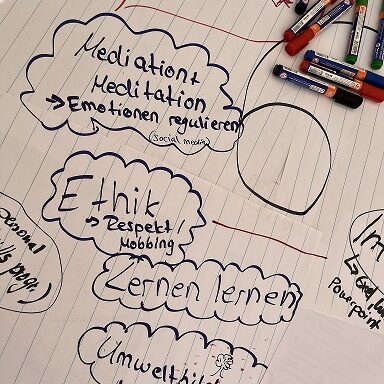 Mediation +
Meditation
→ Emotionen regulieren
(social media)
Ethik
→ Respekt /
Mobbing
Lernen lernen
Umweltbild
Powerpoint